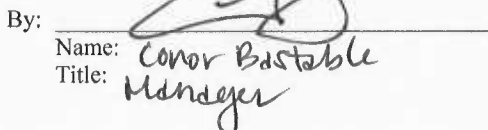 By:
Name: Conor Bastable
Title: Manager